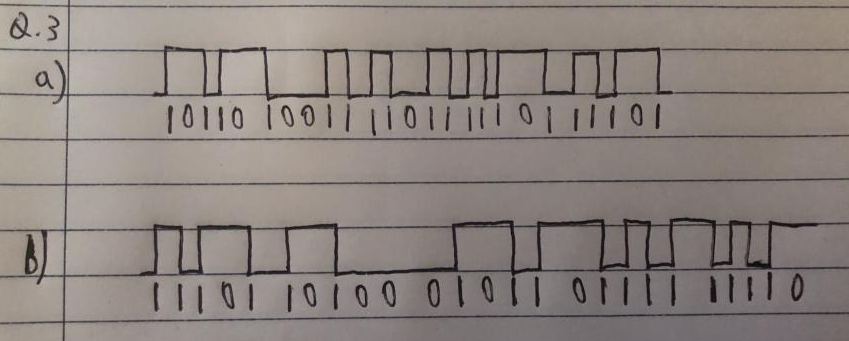 Q.3
a)
10110 10011 11011 11101 11101
b)
11101 10100 01011 01111 11110